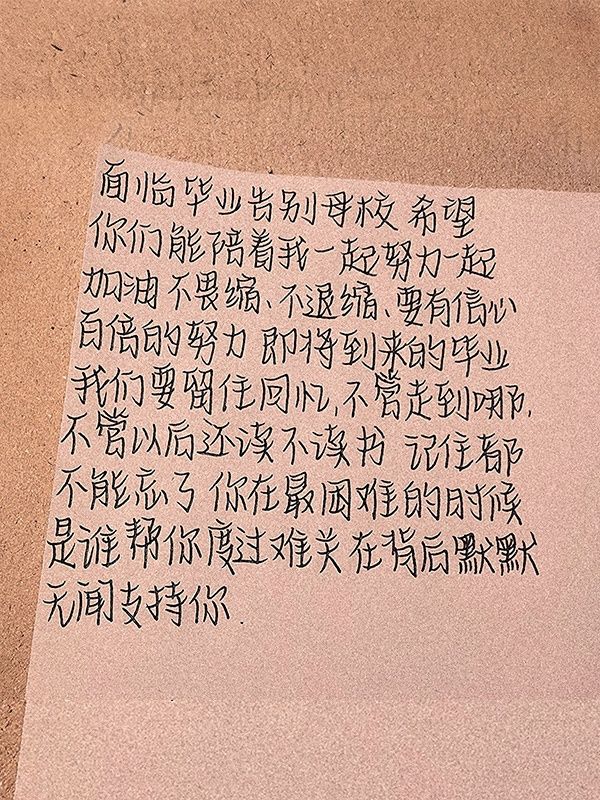 面临毕业告别母校 希望
你们能陪着我一起努力一起
加油 不畏缩、不退缩、要有信心
百倍的努力 即将到来的毕业
我们要留住回忆,不管走到哪,
不管以后还读不读书 记住都
不能忘了 你在最困难的时候
是谁帮你度过难关 在背后默默
无闻支持你.